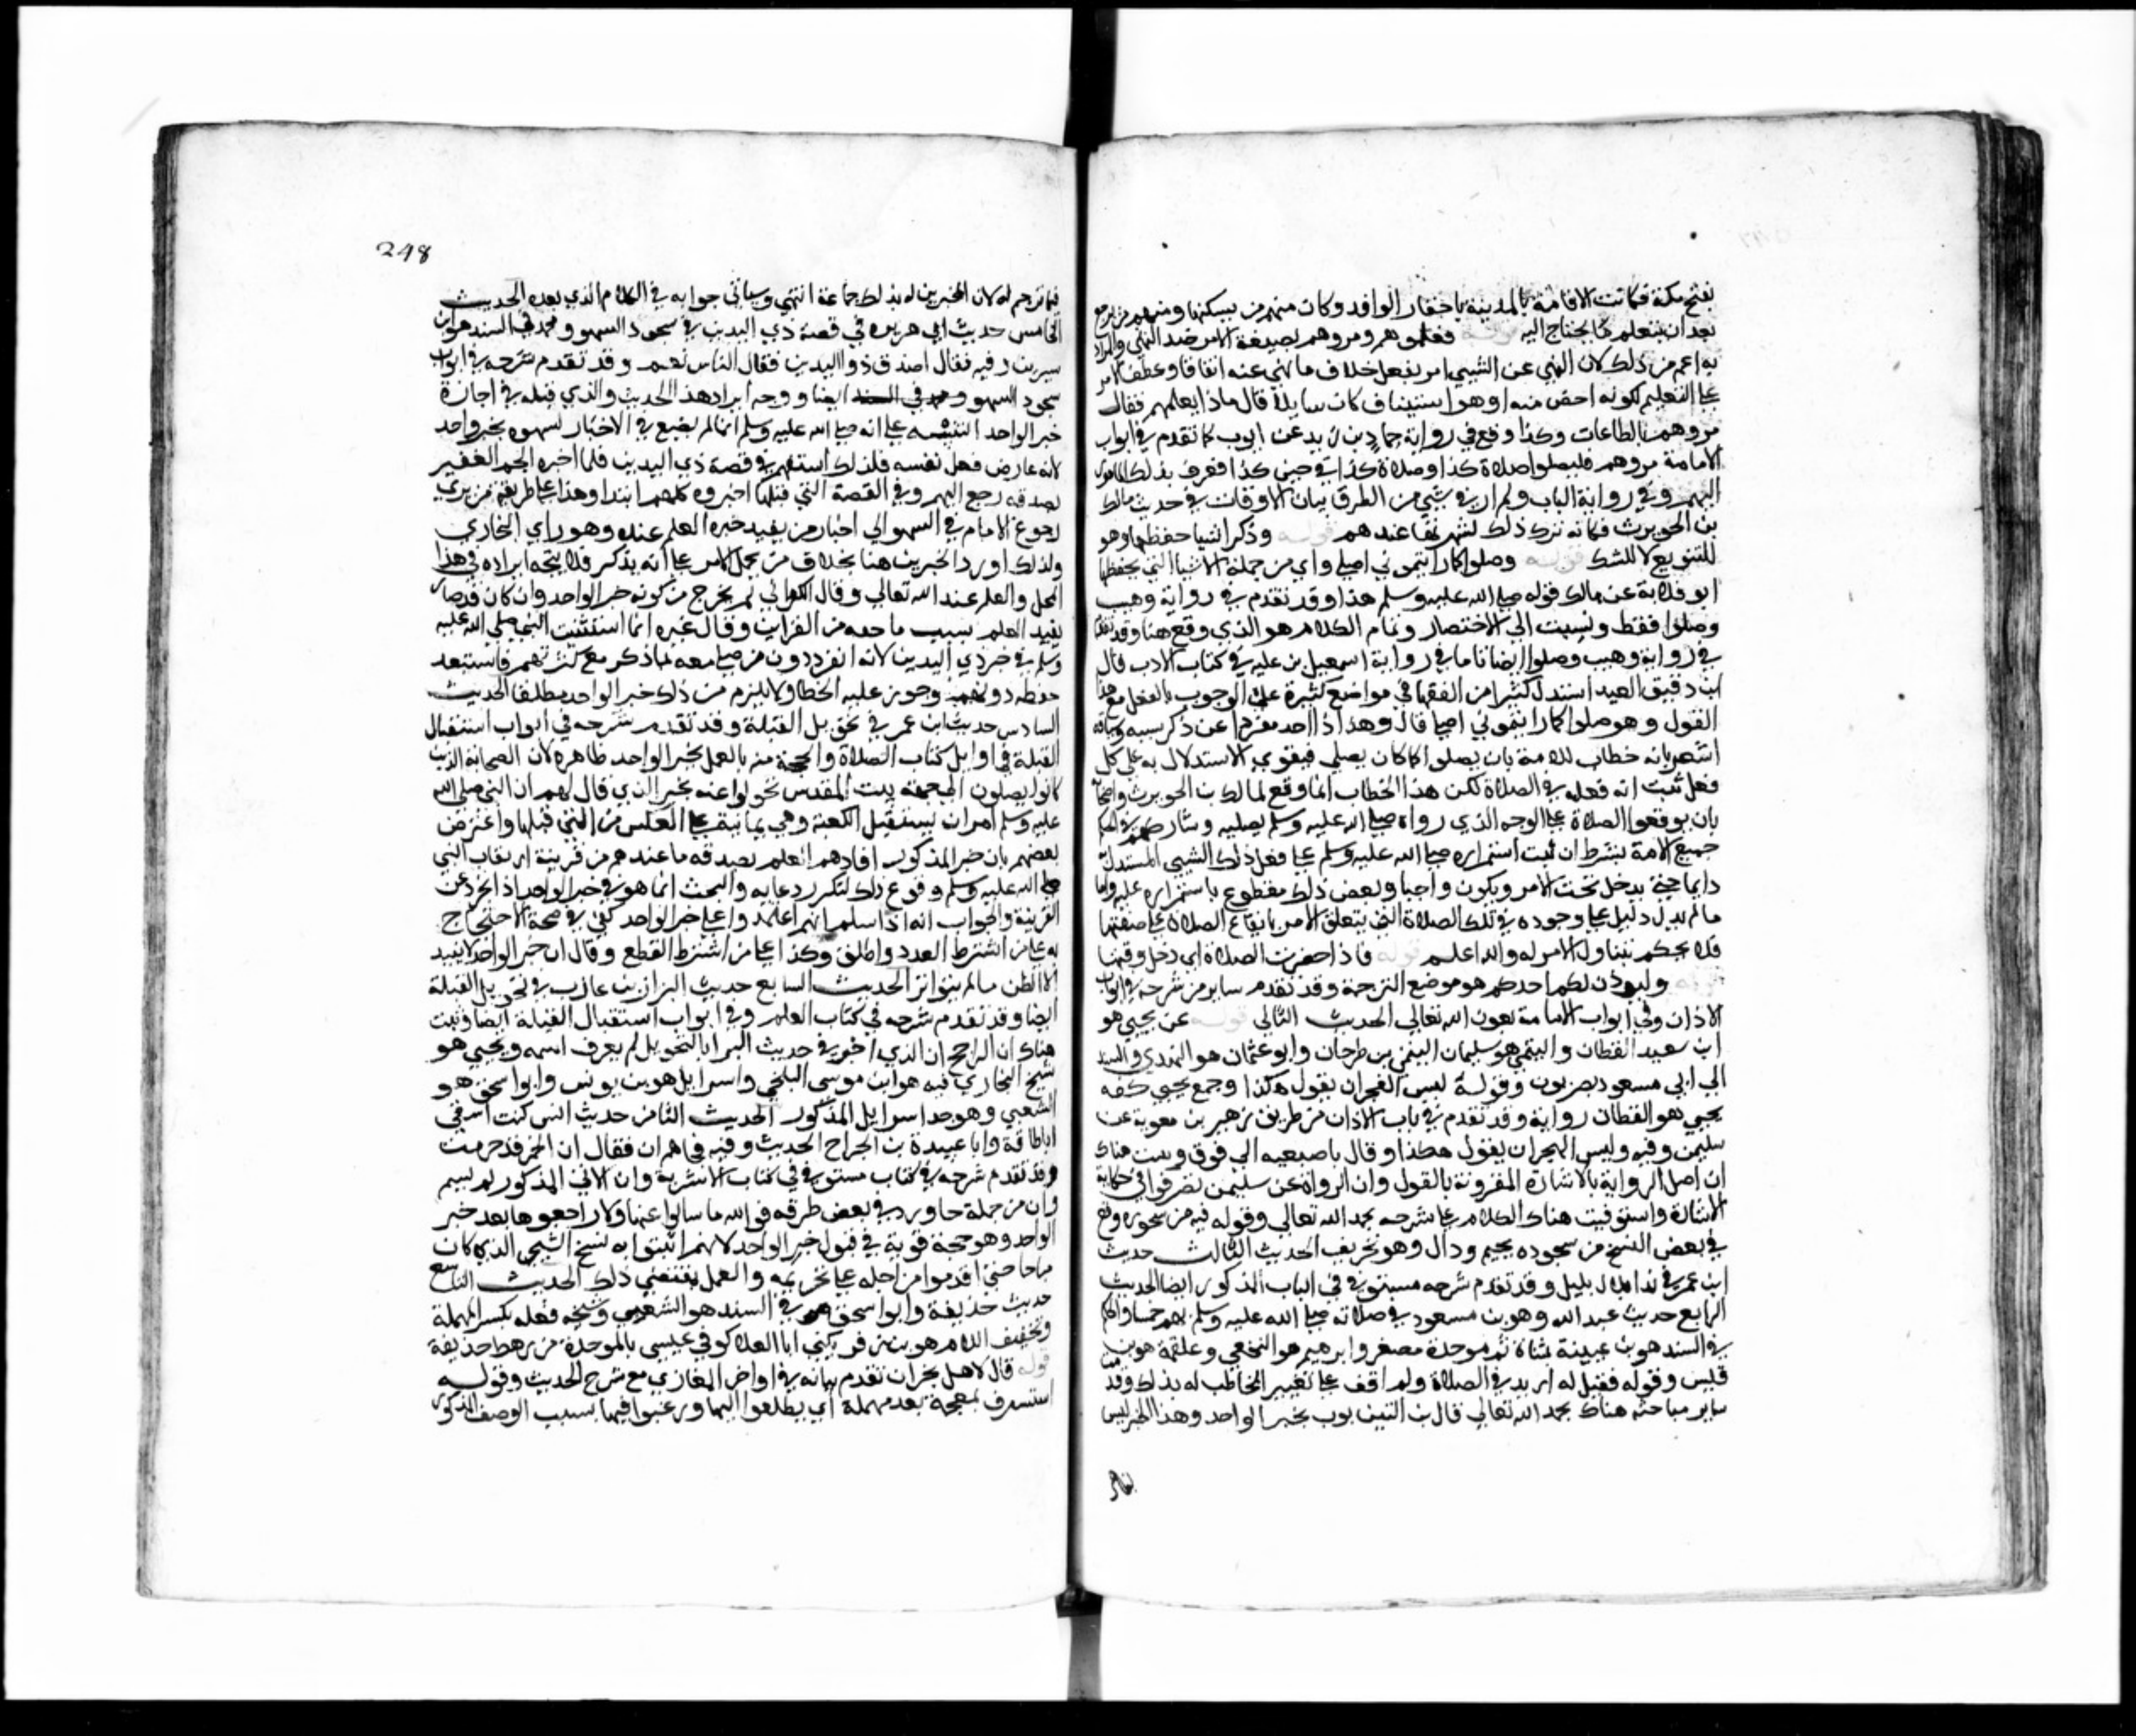 بفتح مكة فكانت الاقامة بالمدينة باختيار الوافد وكان منهم من يسكنها ومنهم من يرجع
بعد ان يتعلم ما يحتاج اليه قوله فعلموهم ومروهم بصيغة الامر ضد النهي والمراد
به اعم من ذلك لان النهي عن الشي امر بفعل خلاف ما نهي عنه اتفاقا وعطف الامر
علي التعليم لكونه اخص منه او هو استيناف كان سايلا قال ماذا يعلمهم فقال
مروهم بالطاعات وكذا وقع في رواية حماد بن زيد عن ايوب كما تقدم في ابواب
الامامة مروهم فليصلوا صلاة كذا وصلاة كذا في حين كذا فعرف بذلك المامور
المبهم وفي رواية الباب ولم ار في شي من الطرق بيان الاوقات في حديث مالك
بن الحويرث فكانه ترك ذلك لشهرتها عندهم قوله وذكر اشيا حفظها وهو
للتنويع لا للشك قوله وصلوا كما رايتموني اصلي واي من جملة الاشيا التي يحفظها
ابو قلابة عن مالك قوله صلي الله عليه وسلم هذا وقد تقدم في رواية وهيب
وصلوا فقط ونسبت الي الاختصار وتمام الكلام هو الذي وقع هنا وقد تقدم
في رواية وهيب وصلوا ايضا تاما في رواية اسمعيل بن علية في كتاب الادب قال
ابن دقيق العيد استدل كثير من الفقها في مواضع كثيرة علي الوجوب بالفعل مع هذا
القول وهو صلوا كما رايتموني اصلي قال وهذا اذا اخذ مفردا عن ذكر سببه وسياقه
اشعر بانه خطاب للامة بان يصلوا كما كان يصلي فيقوي الاستدلال به علي كل
فعل ثبت انه فعله في الصلاة لكن هذا الخطاب انما وقع لمالك بن الحويرث واصحابه
بان يوقعوا الصلاة علي الوجه الذي رواه صلي الله عليه وسلم يصليه وشاركهم في الحكم
جميع الامة بشرط ان ثبت استمراره صلي الله عليه وسلم علي فعل ذلك الشي المستدل به
دايما حتي يدخل تحت الامر ويكون واجبا وبعض ذلك مقطوع باستمراره عليه واما
ما لم يدل دليل علي وجوده في تلك الصلاة التي يتعلق الامر بايقاع الصلاة علي صفتها
فلا يحكم بتناول الامر له والله اعلم قوله فاذا حضرت الصلاة اي دخل وقتها
قوله وليوذن لكم احدكم هو موضع الترجمة وقد تقدم ساير من شرحه في ابواب
الاذان وفي ابواب الامامة بعون الله تعالي الحديث الثاني قوله عن يحيي هو
ابن سعيد القطان والتيمي هو سليمان التيمي بن طرخان وابو عثمان هو النهدي والسند
الي ابي مسعود بصريون وقوله ليس الفجر ان يقول هكذا وجمع يحيي كفه
يحيي هو القطان رواية وقد تقدم في باب الاذان من طريق زهير بن معوية عن
سليمن وفيه وليس الفجر ان يقول هكذا وقال باصبعيه الي فوق وبينت هناك
ان اصل الرواية بالاشارة المقرونة بالقول وان الرواة عن سليمن تصرفوا في حكاية
الاشارة واستوفيت هناك الكلام علي شرحه بحمد الله تعالي وقوله فيه من سحوره وقع
في بعض النسخ من سجوده بجيم ودال وهو تحريف الحديث الثالث حديث
ابن عمر في ندا بلال بليل وقد تقدم شرحه مستوفي في الباب المذكور ايضا الحديث
الرابع حديث عبد الله وهو بن مسعود في صلاته صلي الله عليه وسلم بهم خمسا والحكم
في السند هو بن عيينة بمثناة ثم موحدة مصغر وابرهيم هو النخعي وعلقمة هو بن
قيس وقوله فقيل له ازيد في الصلاة ولم اقف علي تعيين المخاطب له بذلك وقد تقدمت
ساير مباحثه هناك بحمد الله تعالي قال بن التين بوب بخبر الواحد وهذا الخبر ليس
248
فيما ترجم له لان المخبرين له بذلك جماعة انتهي وسياتي جوابه في الكلام الذي بعده الحديث
الخامس حديث ابي هريرة في قصة ذي اليدين في سجود السهو ومحمد في السند هو ابن
سيرين وفيه فقال اصدق ذو اليدين فقال الناس نعم وقد تقدم شرحه في ابواب
سجود السهو ايضا ووجه ايراد هذا الحديث والذي قبله في اجازة
خبر الواحد التنبيه علي انه صلي الله عليه وسلم انما لم يقنع في الاخبار لسهوه بخبر واحد
لانه عارض فعل نفسه فلذلك استفهم في قصة ذي اليدين فلما اخبره الجم الغفير
بصدقه رجع اليهم وفي القصة التي قبلها اخبروه كلهم ابتدا وهذا علي طريقة من يري
رجوع الامام في السهو الي اخبار من يفيد خبره العلم عنده وهو راي البخاري
ولذلك اورد الخبرين هنا بخلاف من يحمل الامر علي انه يذكر فلا يتجه ايراده في هذا
المحل والعلم عند الله تعالي وقال الكرماني لم يخرج من كونه خبر الواحد وان كان قد صار
يفيد العلم بسبب ما حفه من القراين وقال غيره انما استثبت النبي صلي الله عليه
وسلم في خبر ذي اليدين لانه انفرد دون من صلي معه بما ذكر مع كثرتهم فاستبعد
حفظه دونهم وجوز عليه الخطا ولا يلزم من ذلك خبر الواحد مطلقا الحديث
السادس حديث ابن عمر في تحويل القبلة وقد تقدم شرحه في ابواب استقبال
القبلة في اوايل كتاب الصلاة والحجة منه بالعمل بخبر الواحد ظاهرة لان الصحابة الذين
كانوا يصلون الي جهة بيت المقدس تحولوا عنه بخبر الذي قال لهم ان النبي صلي الله
عليه وسلم امر ان يستقبل الكعبة وهي يمانية علي العكس من التي قبلها واعترض
بعضهم بان خبر المذكور افادهم العلم بصدقه ما عندهم من قرينة ارتقاب النبي
صلي الله عليه وسلم وقوع ذلك لتكرر دعايه والبحث انما هو في خبر الواحد اذا تجرد عن
القرينة والجواب انه اذا سلم انهم اعتمدوا علي خبر الواحد كفي في صحة الاحتجاج
به علي من اشترط العدد واطلق وكذا علي من اشترط القطع وقال ان خبر الواحد لا يفيد
الا الظن ما لم يتواتر الحديث السابع حديث البرا بن عازب في تحويل القبلة
ايضا وقد تقدم شرحه في كتاب العلم وفي ابواب استقبال القبلة ايضا وبينت
هناك ان الراجح ان الذي اخبر في حديث البرا بالتحويل لم يعرف اسمه ويحيي هو
شيخ البخاري فيه هو ابن موسي البلخي واسرايل هو بن يونس وابو اسحق هو
الشعبي وهو جد اسرايل المذكور الحديث الثامن حديث انس كنت اسقي
ابا طلحة وابا عبيدة بن الجراح الحديث وفيه فجاهم ان فقال ان الخمر قد حرمت
وقد تقدم شرحه في كتاب مستوفي في كتاب الاشربة وان الاتي المذكور لم يسم
وان من جملة ما ورد في بعض طرقه فوالله ما سالوا عنها ولا راجعوها بعد خبر
الواحد وهو حجة قوية في قبول خبر الواحد لانهم اثبتوا به نسخ الشي الذي كان
مباحا حتي اقدموا من اجله علي تحريمه والعمل بمقتضي ذلك الحديث التاسع
حديث حذيفة وابو اسحق في السند هو الشعبي وشيخه فعله بكسر المهملة
وتخفيف اللام هو بن زفر يكني ابا العلا كوفي عبسي بالموحدة من رهط حذيفة
قوله قال لاهل نجران تقدم بيانه في اواخر المغازي مع شرح الحديث وقوله
استشرف بمعجمة بعد مهملة اي تطلعوا اليها ورغبوا فيها بسبب الوصف المذكور